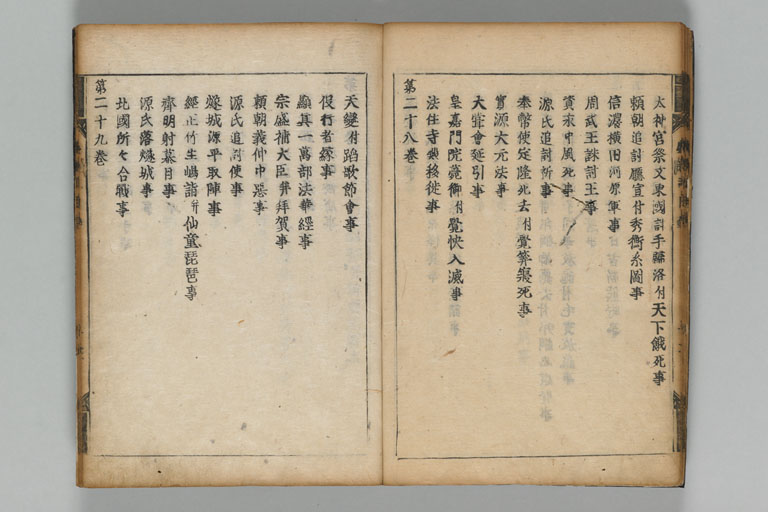 太神宮祭文東国討手帰洛付天下餓死事
頼朝追討庁宣付秀衡系図事
信濃横田河原軍事
周武王誅討王事
資永中風死事
源氏追討祈事
奉幣使定隆死去付覚算寝死事
実源大元法事
大嘗会延引事
皇嘉門院崩御付覚快入滅事
法住寺殿移徙事
第二十八巻
天変付踏歌節会事
役行者縁事
顕真一万部法華経事
宗盛補大臣并拝賀事
頼朝義仲中悪事
源氏追討使事
燧城源平取陣事
経正竹生嶋詣并仙童琵琶事
斉明射蟇目事
源氏落燧城事
北国所々合戦事
第二十九巻